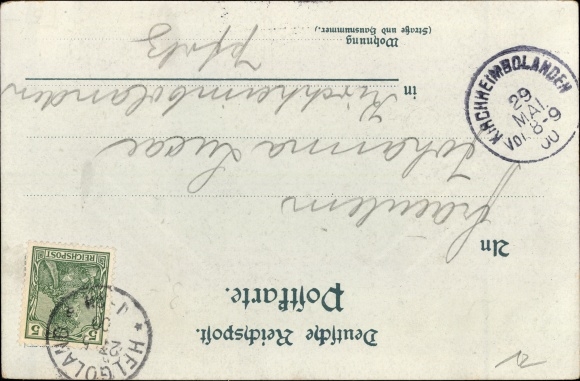 Deutsche Reichspost.
Postkarte.
An
Fräulein
Johanna Lucae
in Kirchheimbolanden
Wohnung
(Straße und Hausnummer.)
Pfalz
REICHSPOST
5 5
HELGOLAND
KIRCHHEIMBOLANDEN
29
MAI.
VOR 8-9
00